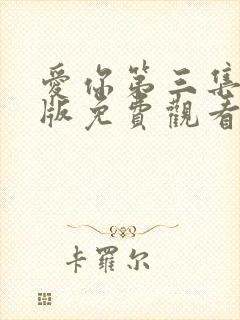 愛你第三集
版免費觀看
卡羅尔